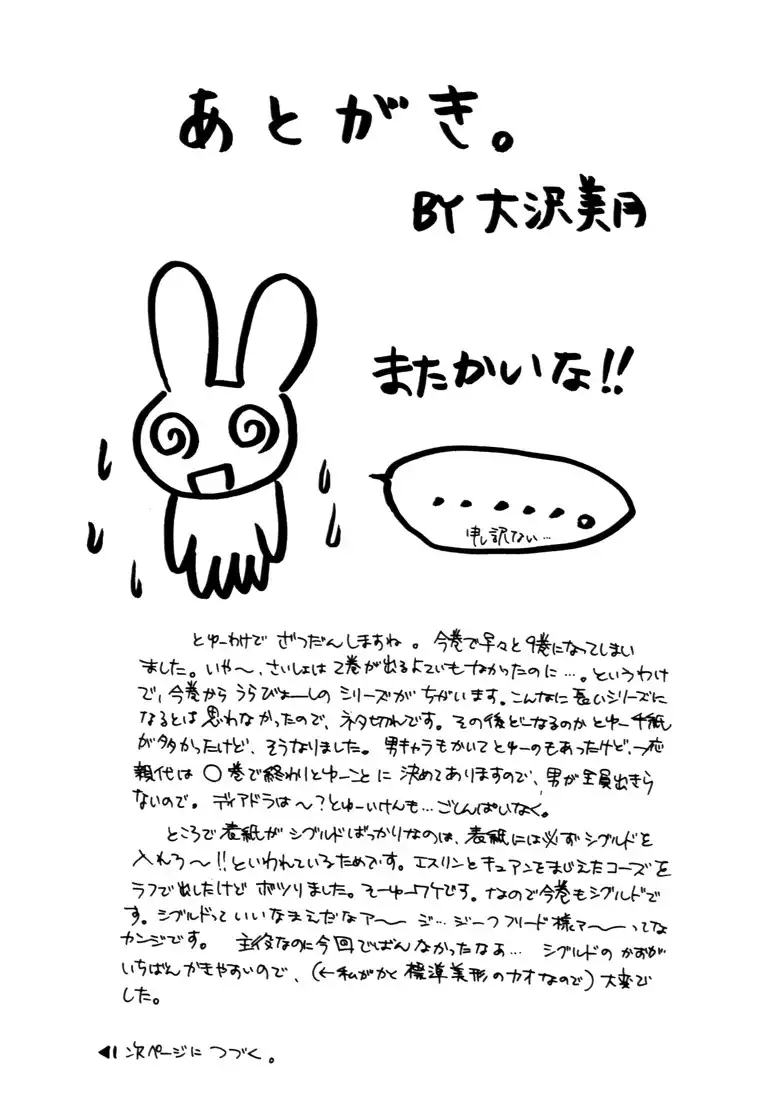 あとがき。
BY 大沢美月
またかいな!!
・・・・・。
申し訳ない…
とゆーわけで ざつだんしますね。今巻で早々と9巻になってしまい
ました。いや〜、さいしょは2巻が出るよていもなかったのに…。というわけ
で、今巻から うらびょーしの シリーズが ちがいます。こんなに長いシリーズに
なるとは 思わなかったので、ネタ切れです。その後どーなるのか とゆー手紙
が多かったけど、そうなりました。男キャラもかいてとゆーのもあったけど、一応
親代は ○巻で終わりとゆーことに 決めてありますので、男が全員出きら
ないので。ディアドラは〜?とゆーいけんも…ごしんぱいなく。
ところで 表紙が シグルドばっかりなのは、表紙には必ず シグルドを
入れろ〜!!といわれているためです。エスリンとキュアンをまじえたコーズを
ラフで出したけど ボツりました。そーゆーワケです。なので今巻もシグルドで
す。シグルドって いいなまえだなァ〜 ジ…ジークフリード様ァ〜ってな
カンジです。主役なのに今回でばんなかったなぁ… シグルドの かおが
いちばん かきやすいので、(←私がかく 標準美形のカオなので) 大変で
した。
◀ 次ページに つづく。